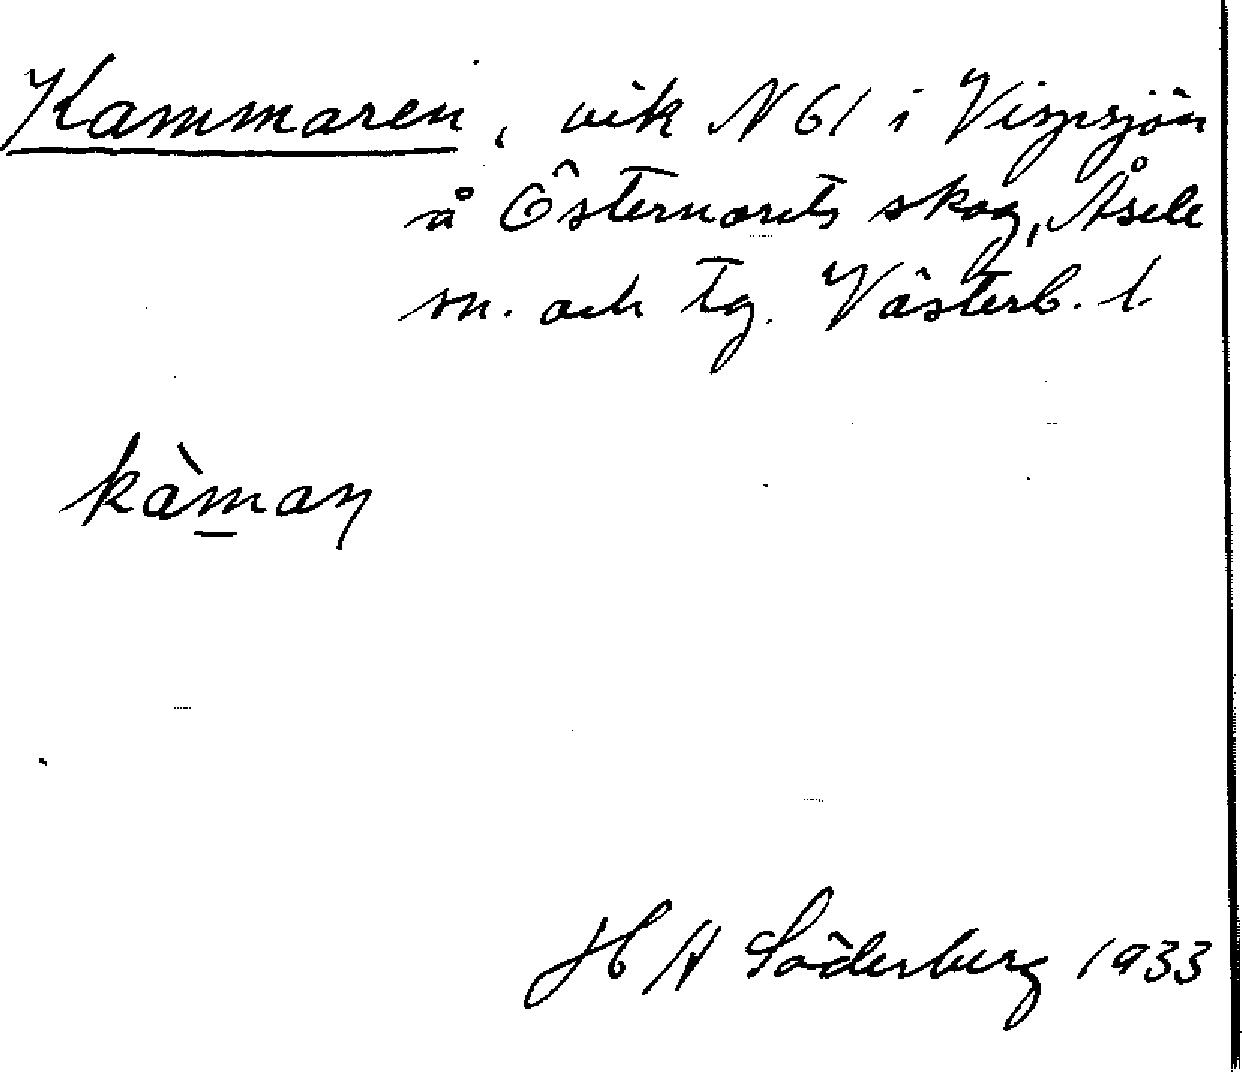 Kammaren, vik N 61 i Vispsjön
å Östernorets skog, Åsele
sn. och tg. Västerb. l.
kàmaɳ
H A Söderberg 1933